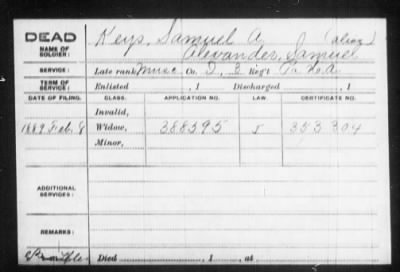 DEAD
NAME OF SOLDIER:
Keys, Samuel A. (alias)
Alexander, Samuel
SERVICE: Late rank Musc Co. D, 3 Reg't Pa. H.A.
TERM OF SERVICE: Enlisted , 1 Discharged , 1
DATE OF FILING. CLASS. APPLICATION NO. LAW. CERTIFICATE NO.
Invalid,
1889 Feb 8 Widow, 388595 353 304
Minor,
ADDITIONAL SERVICES:
REMARKS:
Died , 1 , at